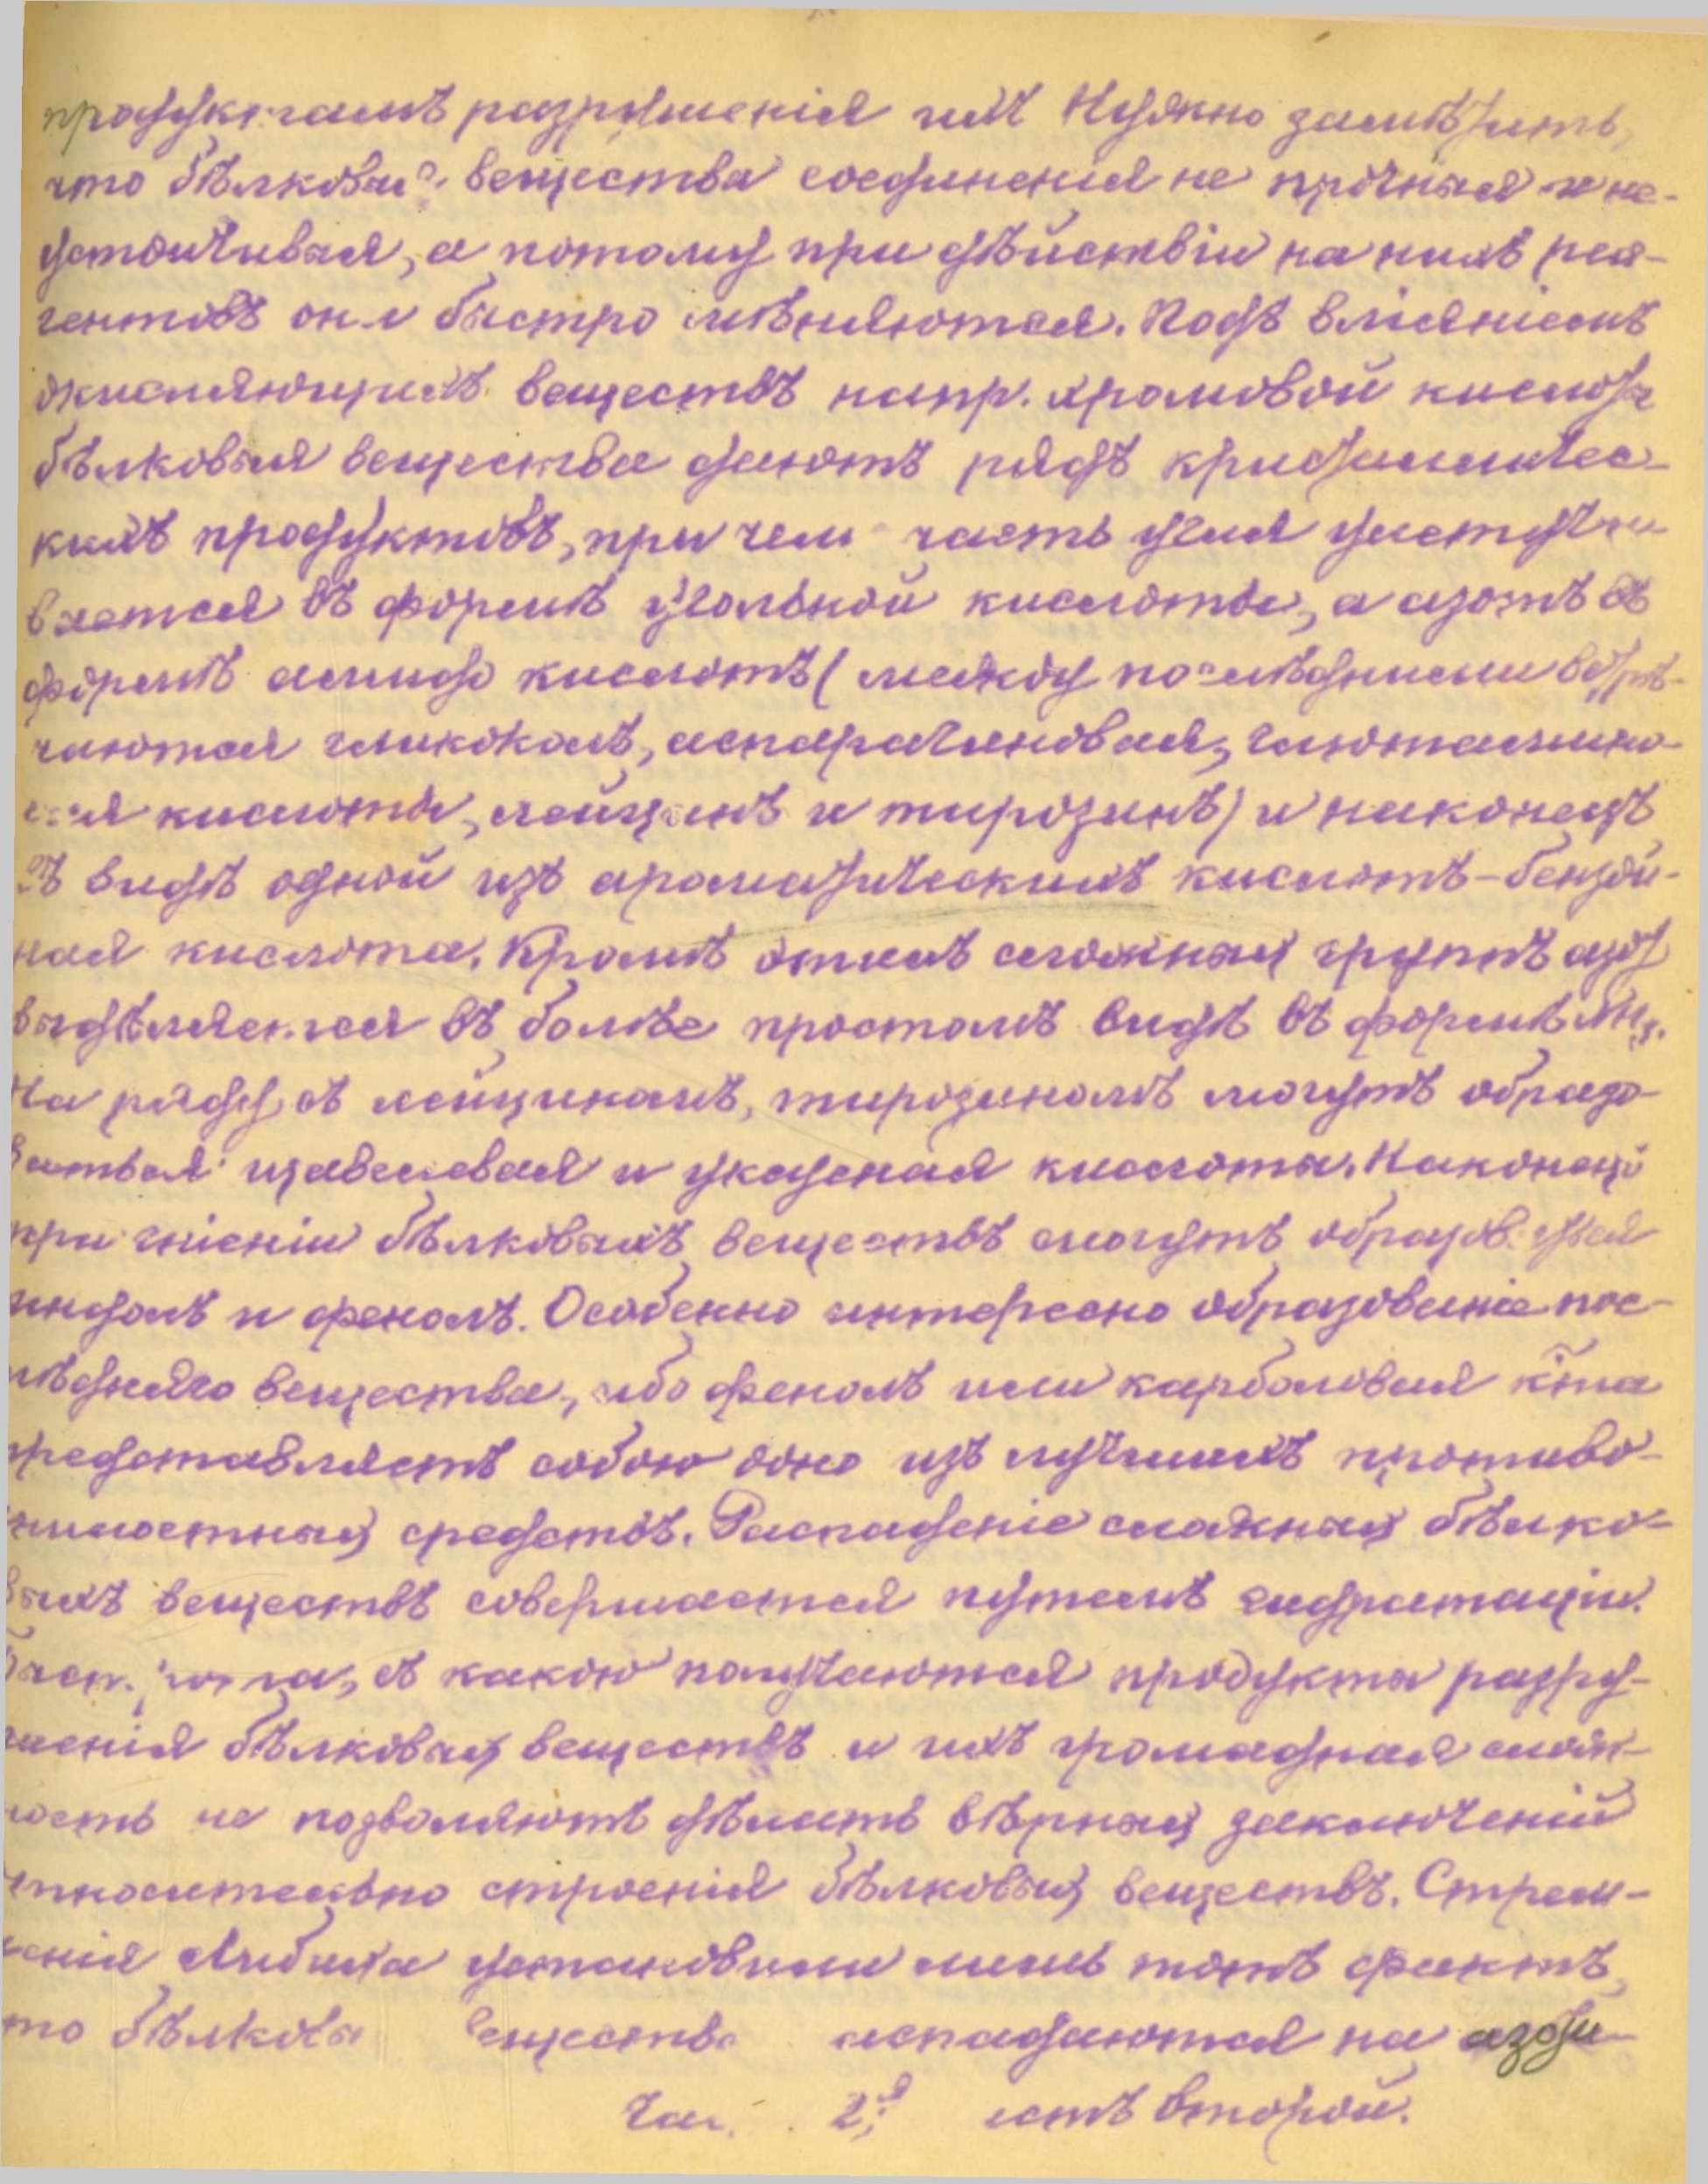 продуктамъ разрушенія ихъ Нужно замѣтить,
что бѣлковыя вещества соединенія не прочныя и не-
устойчивыя, а потому при дѣйствіи на нихъ реа-
гентовъ они быстро мѣняются. Подъ вліяніемъ
окисляющихъ веществъ напр. хромовой кислоты
бѣлковыя вещества даютъ рядъ кристалличес-
кихъ продуктовъ, при чем часть угля улетучи-
вается въ формѣ угольной кислоты, а азотъ въ
формѣ амидо кислотъ (между послѣдними встрѣ-
чаются гликоколъ, аспарагиновая, глютамино-
вая кислоты, лейцинъ и тирозинъ) и наконецъ
въ видѣ одной изъ ароматическихъ кислотъ - бензой-
ная кислота. Кромѣ этихъ сложных группъ азот
выдѣляется въ болѣе простомъ видѣ въ формѣ NH₃.
На ряду съ лейциномъ, тирозиномъ могутъ образо-
ваться щавелевая и уксусная кислоты. Наконецъ
при гніеніи бѣлковыхъ веществъ могутъ образов. ться
индолъ и фенолъ. Особенно интересно образованіе пос-
лѣдняго вещества, ибо фенолъ или карболовая к~та
представляетъ собою одно изъ лучшихъ противо-
гнилостных средствъ. Распаденіе сложных бѣлко-
выхъ веществъ совершается путемъ гидратаціи.
съ какою получаются продукты разру-
шенія бѣлковых веществъ и ихъ громадная слож-
ность не позволяютъ дѣлать вѣрных заключеній
относительно строенія бѣлковых веществъ. Стрем-
ленія Либиха установили лишь тотъ фактъ,
что бѣлковы вещества распадаются на азоти-
Час. 2я листъ второй.